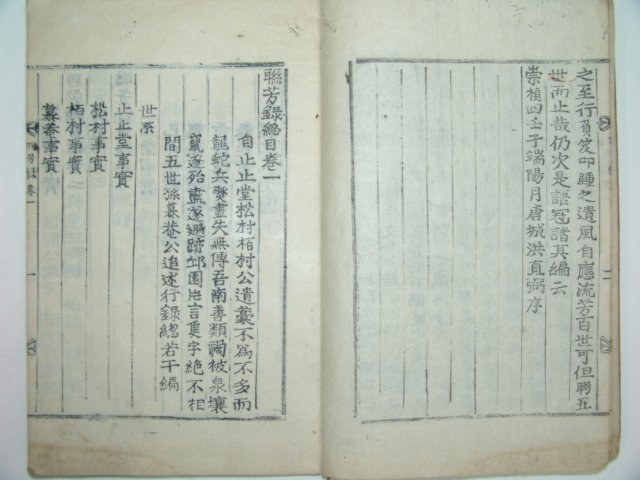 之至行負笈叩踵之遺風自應流芳百世可但聯五
世而止哉仍次是語冠諸其編云
崇禎四壬子端陽月唐城洪直弼序
聯芳錄總目卷一
自止止堂松村栢村公遺藁不爲不多而
龍蛇兵燹盡失無傳吾南善類禍被泉壤
竄逐殆盡遂遯跡邱園片言隻字絶不相
間五世孫慕菴公追述行錄總若干編
世系
止止堂事實
松村事實
栢村事實
慕菴事實
聯芳錄 卷一
一